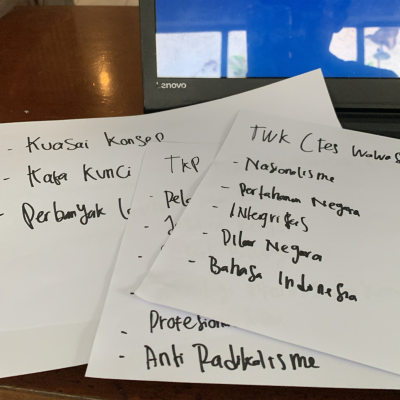 Lenovo
- Kuasai Konsep
- Kata Kunci
- Perbanyak
TKP
- Pel
- Profesion
- Anti Radikalisme
TWK (Tes Wawas
- Nasionalisme
- Pertahanan Negara
- INtegritas
- Pilar Negara
- Bahasa Indonesia